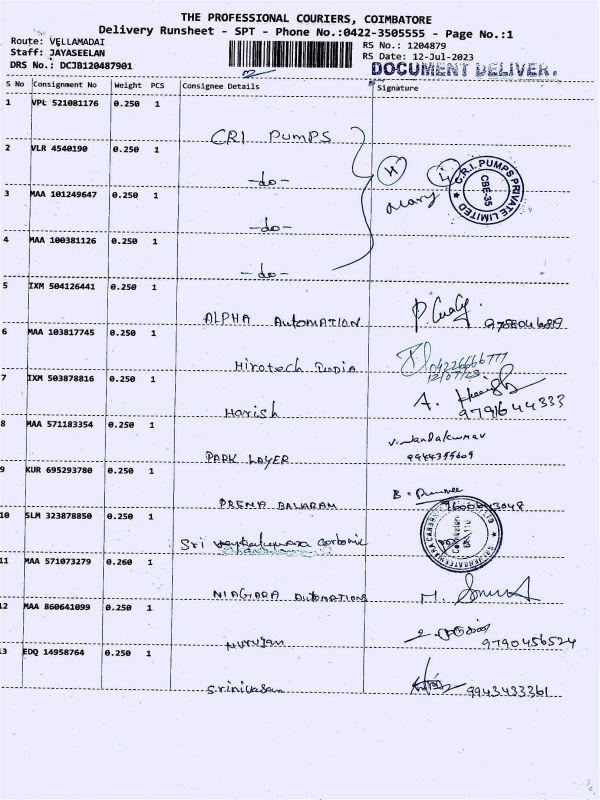 THE PROFESSIONAL COURIERS, COIMBATORE
Delivery Runsheet - SPT - Phone No.:0422-3505555 - Page No.:1
Route: VELLAMADAI
Staff: JAYASEELAN
DRS No.: DCJB120487901
RS No.: 1204879
RS Date: 12-Jul-2023
DOCUMENT DELIVER.
S No Consignment No Weight PCS Consignee Details Signature
1 VPL 521081176 0.250 1
CRI PUMPS
2 VLR 4540190 0.250 1
-do-
C.R.I. PUMPS PRIVATE LIMITED
CBE-35
3 MAA 101249647 0.250 1
-do-
4 MAA 100381126 0.250 1
-do-
5 IXM 504126441 0.250 1
ALPHA AUTOMATION
6 MAA 103817745 0.250 1
Hirotech India
04226666777
12/07/23
7 IXM 503878816 0.250 1
Harish
9791644333
8 MAA 571183354 0.250 1
PARK LAYER
V. Nandakumar
9944355609
9 KUR 695293780 0.250 1
PREMA BALARAM
10 SLM 323878850 0.250 1
Sri
Carbonic
11 MAA 571073279 0.260 1
NIAGARA AUTOMATIONS
12 MAA 860641099 0.250 1
Murugan
9790456524
13 EDQ 14958764 0.250 1
Srinivasan
9943433361